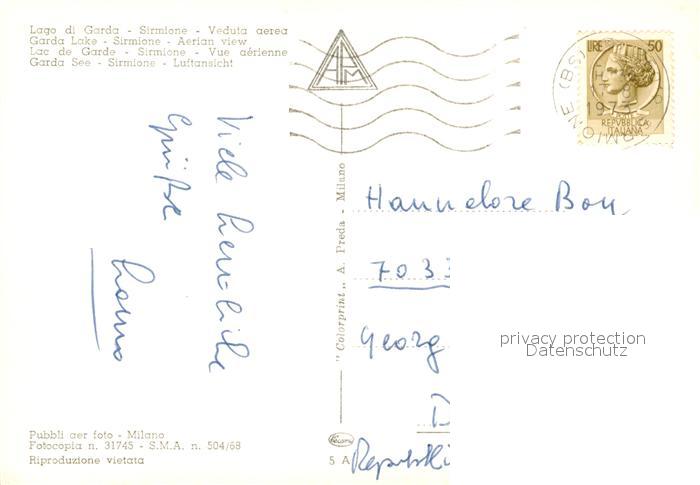 Lago di Garda - Sirmione - Veduta aerea
Garda Lake - Sirmione - Aerian view
Lac de Garde - Sirmione - Vue aérienne
Garda See - Sirmione - Luftansicht
LIRE 50
REPUBBLICA
ITALIANA
SIRMIONE (BS)
Viele herzliche
Grüße
Hannelore Bon
7033
Georg
Republi
privacy protection
Datenschutz
"Colorprint" A. Preda - Milano
Pubbli aer foto - Milano
Fotocopia n. 31745 - S.M.A. n. 504/68
Riproduzione vietata
5 A